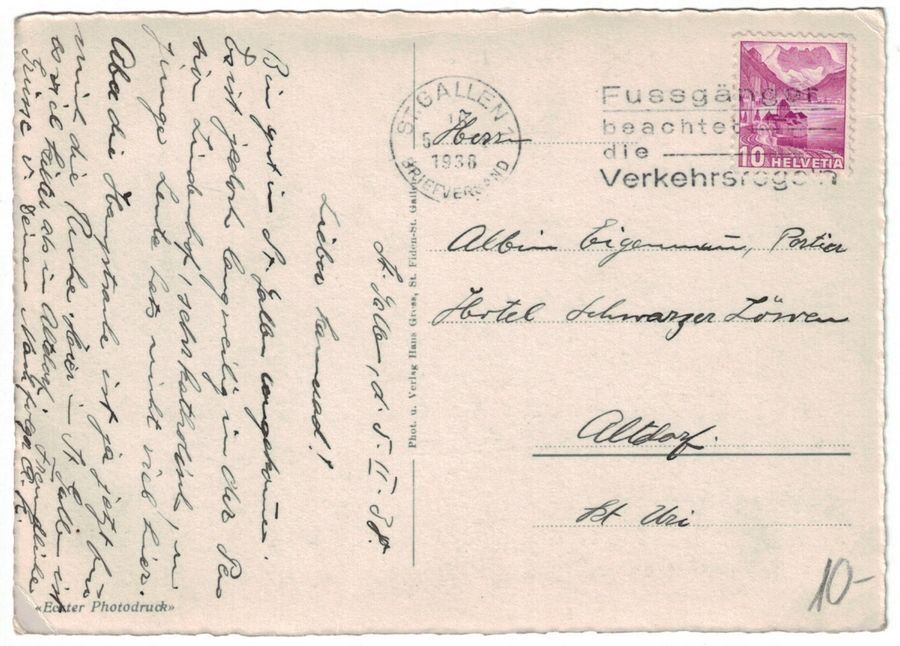 St. Gallen, d. 5. II. 38
Lieber Kamerad!
Bin gut in St. Gallen angekommen.
Es ist jedoch langweilig in der Pen
sion Lindenhof, sehr katholisch, u
junge Leute hats nicht viel hier.
Aber die Hauptsache ist ja jetzt für
mich die Ruhe hier. – St. Gallen ist
so viel
als in Altdorf. Freundliche
Grüsse v. Deinem Nachfolger
«Echter Photodruck»
Phot. u. Verlag Hans Gross, St. Fiden-St. Gallen
ST. GALLEN 1
1938
BRIEFVERSAND
Fussgänger
beachtet
die
Verkehrsregeln
10 HELVETIA
Herrn
Albin Eigenmann, Portier
Hotel Schwarzer Löwen
Altdorf.
Kt Uri
10-